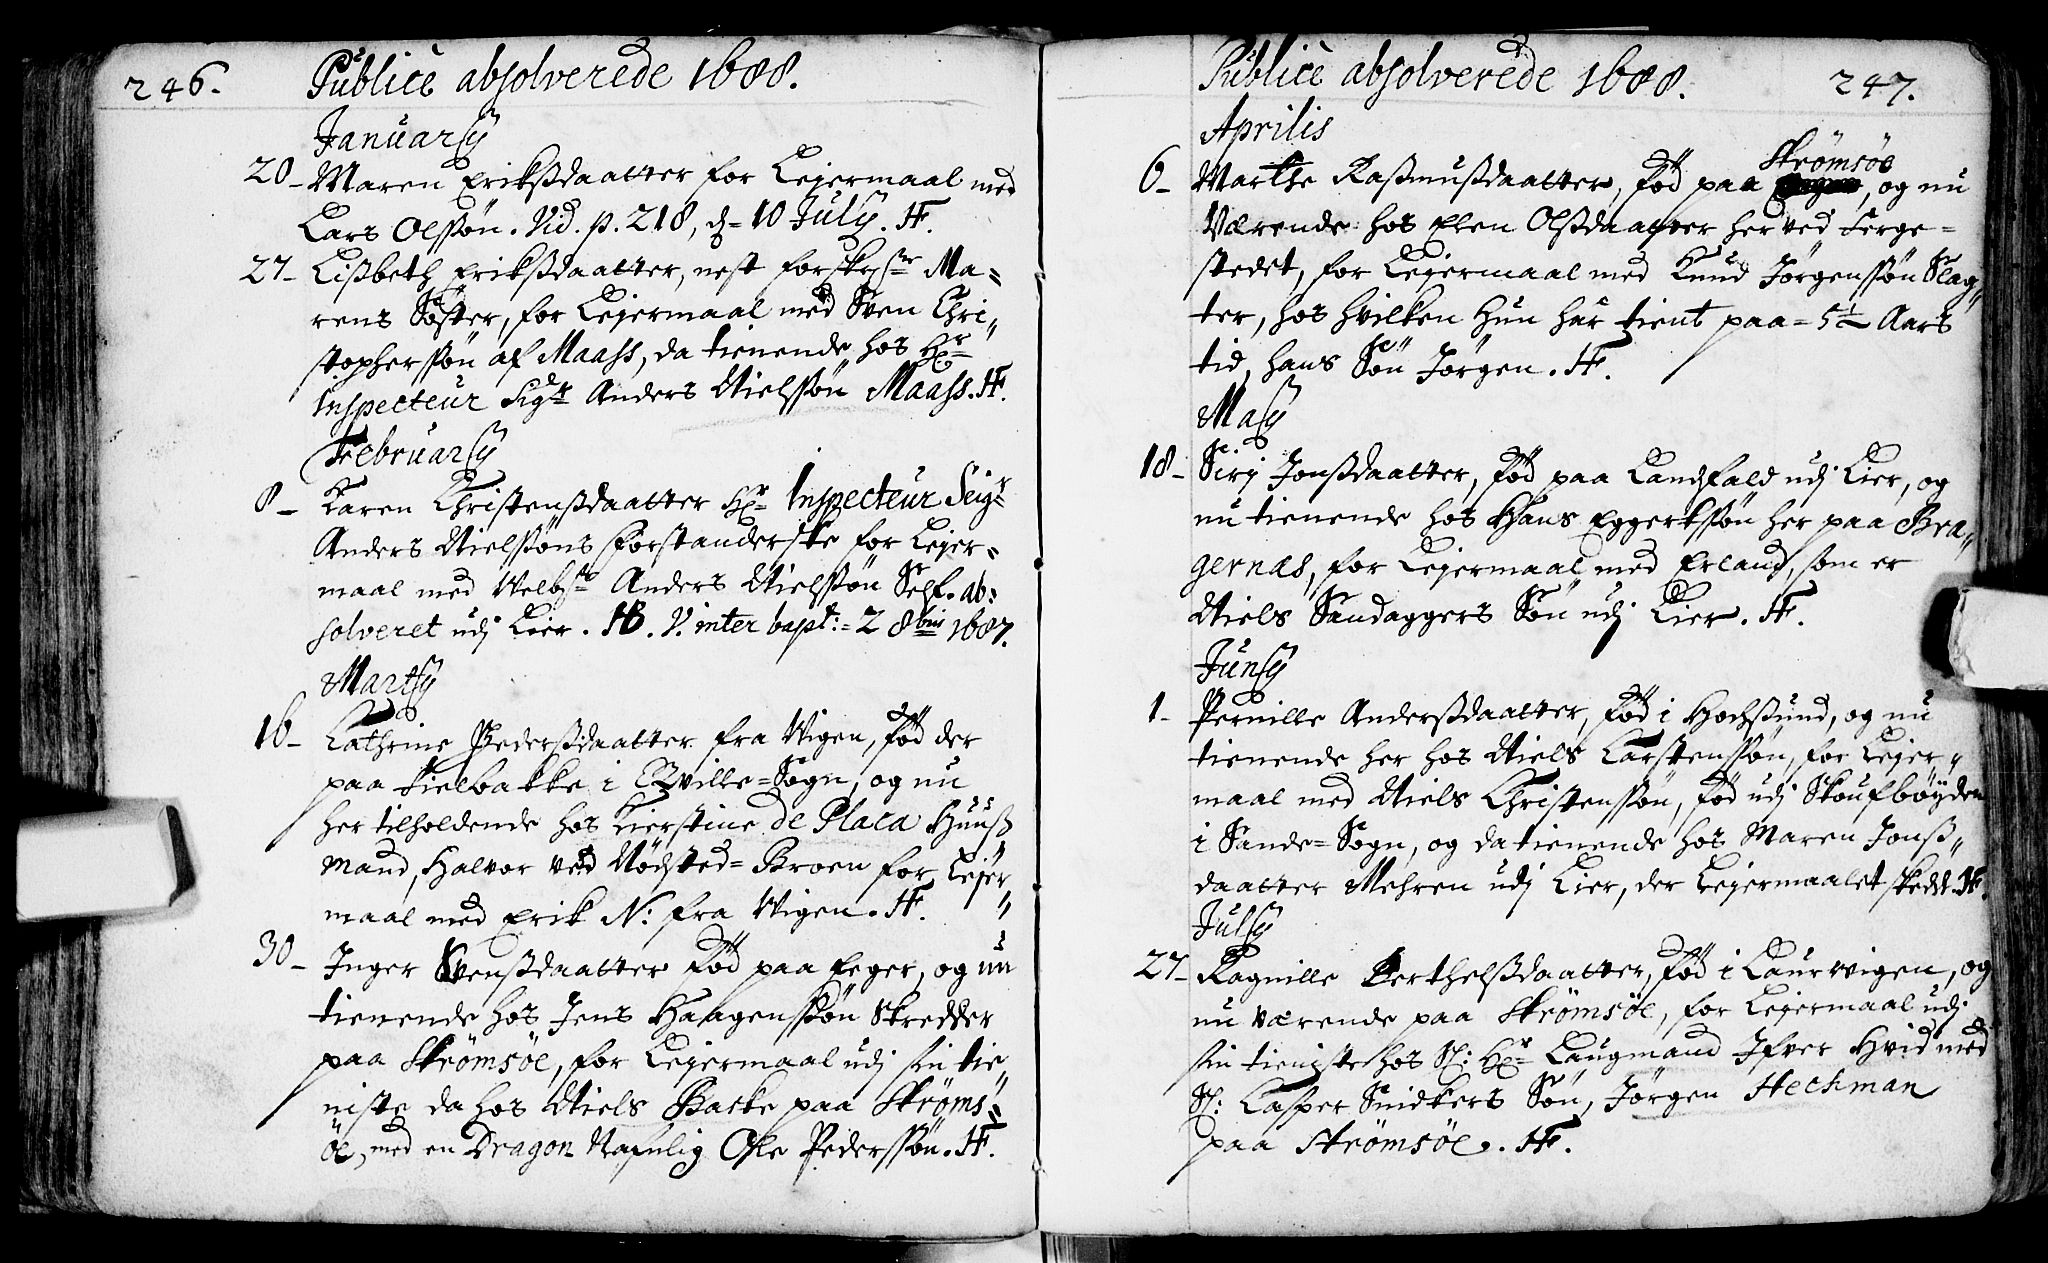 246.
Publicè absolverede 1688.
Januarij
20 - Maren Erikßdaatter for Leyermaal med
Lars Olssøn. Vid. p. 218, d= 10 Julij. HF.
27 - Lißbeth Erikßdaatter, nest forskrne Ma-
rens Søster, for Leyermaal med Sven Chri-
stopherssøn af Maass, da tienende hos Hr
Inspecteur Sigr Anders Nielssøn Maass. HF.
Februarij
8 - Karen Christenßdaatter Hr Inspecteur Seigr
Anders Nielssøns Forstanderske for Leyer-
maal med Velbte Anders Nielssøn Self. ab-
solveret udj Lier. HB. V. inter bapt: = 2 8bris 1687.
Martij
16 - Cathrine Pederßdaatter fra Wigen, fød der
paa Kielbakke i Rville=Sogn, og nu
her tilholdende hos Kierstine de Placa Huuß
mand, Halvor ved Nødsted=Broen for Leyer-
maal med Erik N: fra Wigen. HF.
30 - Inger Svenßdaatter fød paa Eeger, og nu
tienende hos Jens Haagenssøn Skredder
paa Strømsöe, for Leyermaal udj sin tie-
niste da hos Niels Barke paa Strøms-
öe, med en Dragon Nafnlig Ole Pederssøn. HF.
Publicè absolverede 1688.
247.
Aprilis
Strømsöe
6 - Marthe Raßmußdaatter, fød paa , og nu
Værende hos Elen Olßdaatter her ved Ferge-
stedet, for Leyermaal med Knud Jørgenssøn Slag-
ter, hos hvilken Hun har tient paa = 5½ Aars
tid, hans Søn Jørgen. HF.
Maij
18 - Sirj Jonßdaatter, fød paa Landfald udj Lier, og
nu tienende hos Hans Eggertssøn her paa Bra-
gernæs, for Leyermaal med Erland, som er
Niels Sandaggers Søn udj Lier. HF.
Junij
1 - Pernille Anderßdaatter, fød i Hochsund, og nu
tienende her hos Niels Carstenssøn, for Leyer-
maal med Niels Christenssøn, fød udj Skoufbøyden
i Sande=Sogn, og da tienende hos Maren Jonß-
daatter Mehren udj Lier, der Leyermaalet skedde. HF.
Julij
27 - Ragnille Berthelßdaatter, fød i Laurwigen, og
nu værende paa Strømsöe, for Leyermaal udj
sin tieniste hos Sl: Hr Laugmand Ifver Hvid med
Sl: Casper Snidkers Søn, Jørgen Heckman
paa Strømsöe. HF.